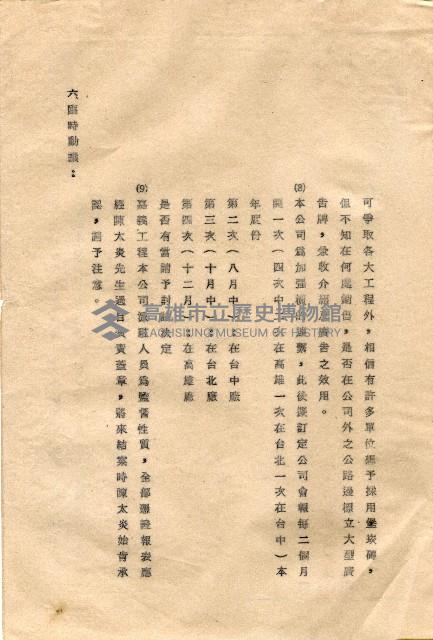 可爭取各大工程外，相信有許多單位極予採用壘崁磚，
但不知在何處銷售，是否在公司外之公路邊標立大型廣
告牌，兼收介紹及廣告之效用。
(8)本公司為加強橫的連繫，此後擬訂定公司會報每二個月
開一次（四次中二次在高雄一次在台北一次在台中）本
年度份
第二次（八月中）：在台中廠
第三次（十月中）：在台北廠
第四次（十二月中）：在高雄廠
是否有當請予討論決定
(9)嘉義工程本公司派駐人員為監督性質，全部憑證報表應
經陳太炎先生過目負責蓋章，將來結案時陳太炎始肯承
認，請予注意。
六臨時動議：
高雄市立歷史博物館
KAOHSIUNG MUSEUM OF HISTORY